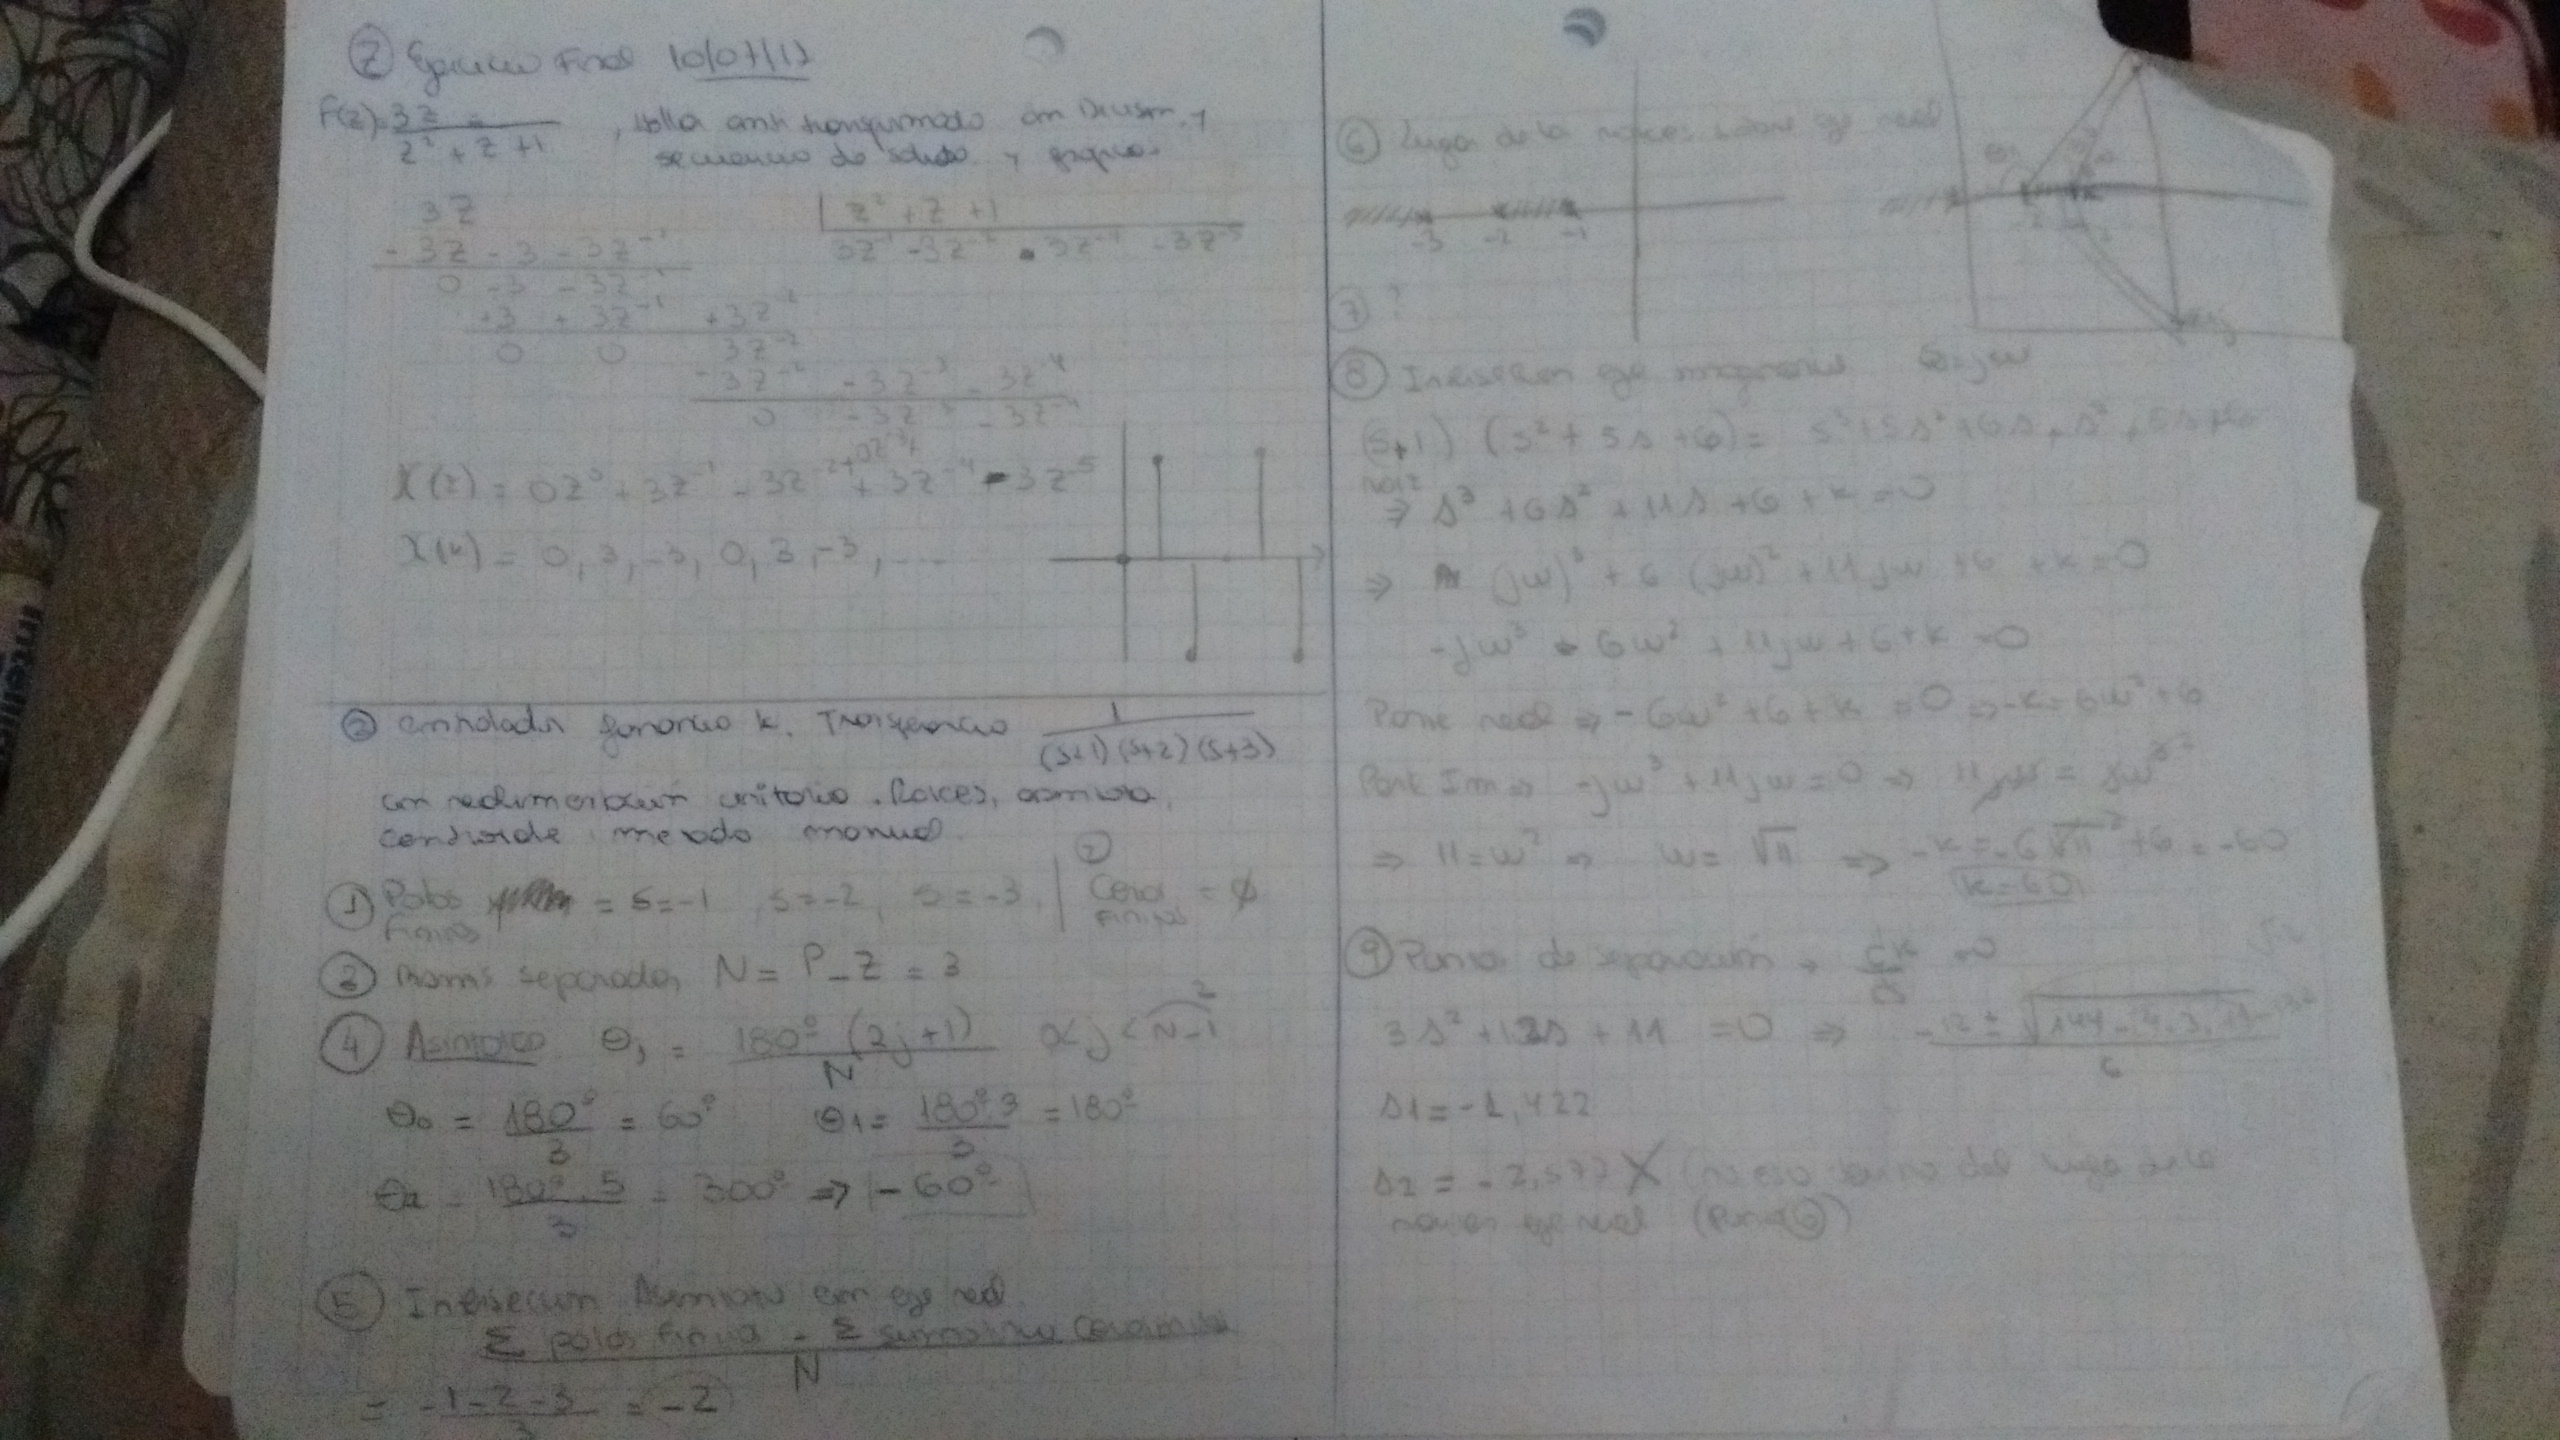 ② Ejercicio Final 10/07/17
F(z) = 3z / z² + z + 1 , Halla antitransformada con División, y
secuencia de salida y grafica.
3z | z² + z + 1
- 3z - 3 - 3z⁻¹ 3z⁻¹ - 3z⁻² + 3z⁻⁴ - 3z⁻⁵
0 - 3 - 3z⁻¹
+3 + 3z⁻¹ + 3z⁻²
0 0 3z⁻²
- 3z⁻² - 3z⁻³ - 3z⁻⁴
0 - 3z⁻³ - 3z⁻⁴
X(z) = 0z⁰ + 3z⁻¹ - 3z⁻² + 0z⁻³ + 3z⁻⁴ - 3z⁻⁵
X(k) = 0, 3, -3, 0, 3, -3, ...
③ controlador ganancia k. Transferencia 1 / (s+1)(s+2)(s+3)
con realimentación unitaria. Raíces, asintota,
centroide metodo manual.
① Polos finitos = s=-1, s=-2, s=-3 | ② Ceros finitos = ∅
③ Ramas separadas N = P - Z = 3
④ Asintotas θj = 180° (2j+1) / N 0<j<N-1 2
θ0 = 180° / 3 = 60° θ1 = 180°.3 / 3 = 180°
θ2 = 180°.5 / 3 = 300° ⇒ - 60°
⑤ Intersección Asintotas con eje real
Σ polos finitos - Σ ceros finitos / N
= -1-2-3 / 3 = -2
⑥ Lugar de la raices sobre eje real
-3 -2 -1
⑦ ?
⑧ Intersección eje imaginario s=jw
(s+1) (s² + 5s + 6) = s³ + 5s² + 6s + s² + 5s + 6
⇒ s³ + 6s² + 11s + 6 + k = 0
⇒ (jw)³ + 6 (jw)² + 11jw + 6 + k = 0
-jw³ - 6w² + 11jw + 6 + k = 0
Parte real ⇒ -6w² + 6 + k = 0 ⇒ -k = -6w² + 6
Part Im ⇒ -jw³ + 11jw = 0 ⇒ 11jw = jw³
⇒ 11 = w² ⇒ w = √11 ⇒ -k = -6√11² + 6 = -60
k = 60
⑨ Punto de separación → dk/ds = 0
3s² + 12s + 11 = 0 ⇒ -12 ± √144 - 4.3.11 / 6
s1 = -1,422
s2 = -2,577 X (no esta dentro del lugar de la
raices eje real (Punto ⑥)